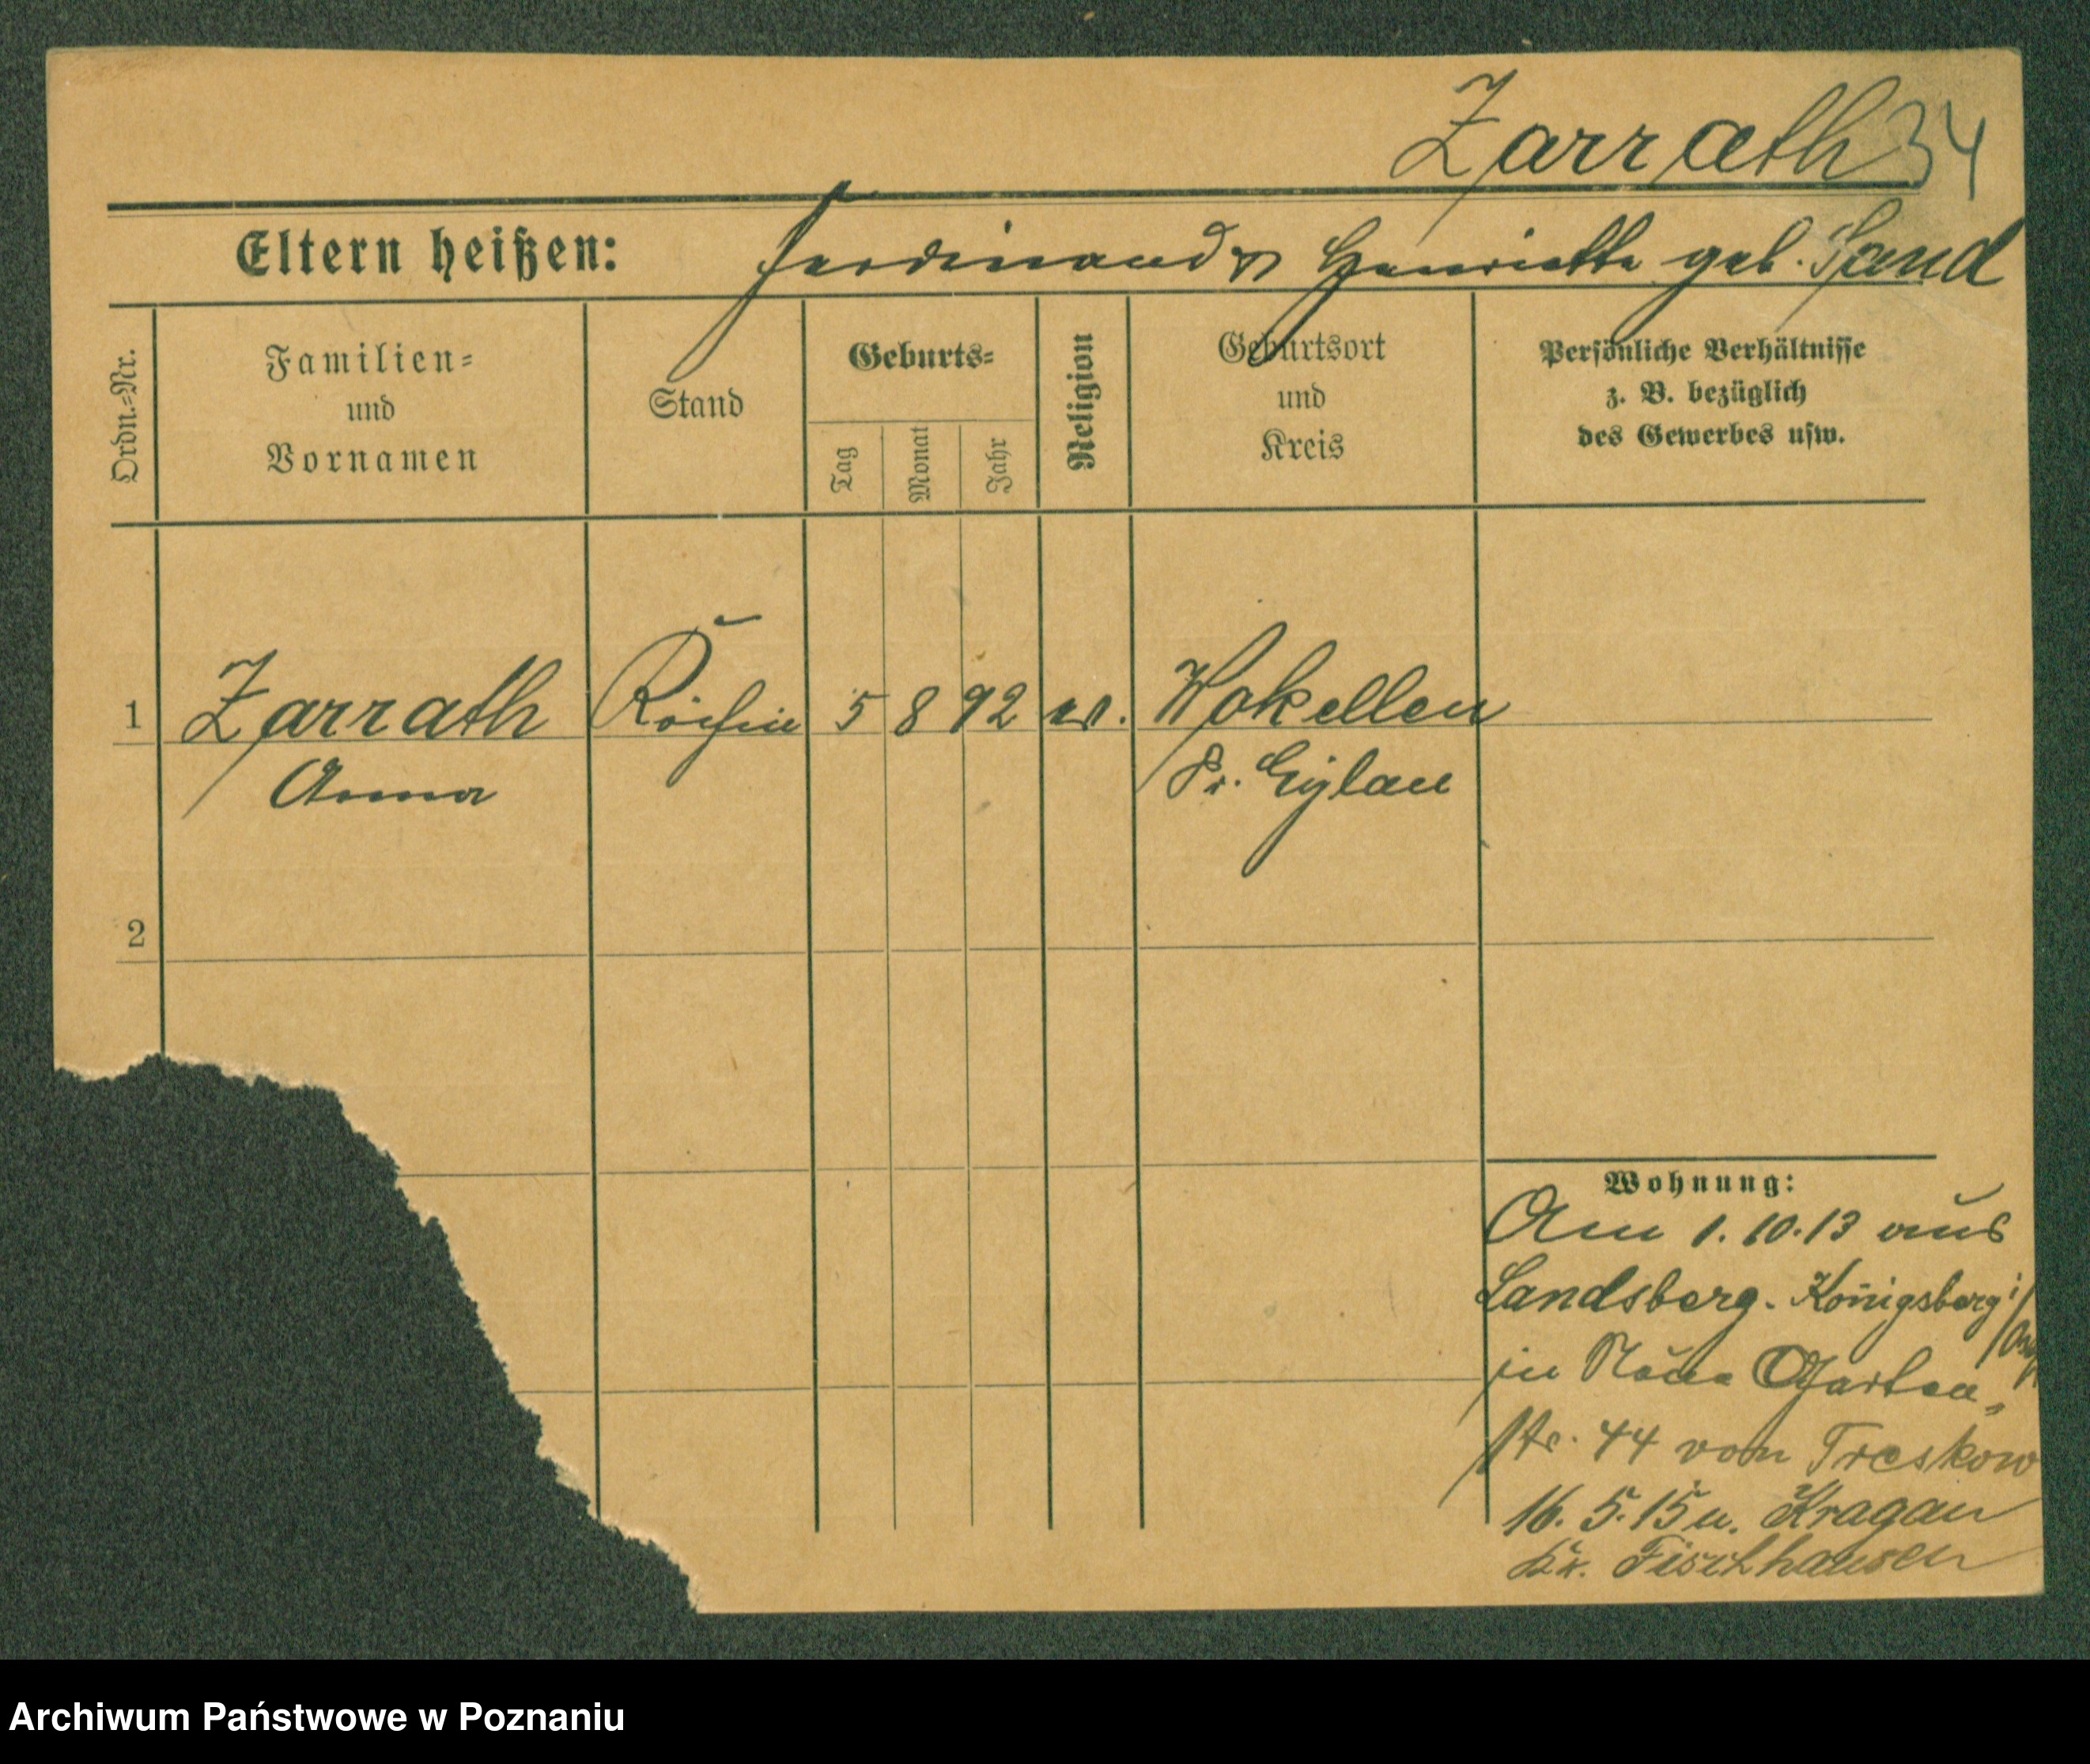 Zarrath 34
Eltern heißen: Ferdinand u Henriette geb. Sand
Ordn.=Nr.
Familien=
und
Vornamen
Stand
Geburts=
Tag
Monat
Jahr
Religion
Geburtsort
und
Kreis
Persönliche Verhältnisse
z. B. bezüglich
des Gewerbes usw.
1 Zarrath Köchin 5 8 92 ev. Wokellen
Anna Pr. Eylau
2
Wohnung:
Am 1.10.13 aus
Landsberg. Königsberg i/
in Neue Garten
str. 44 von Treskow
16. 5. 15 n. Kragau
Kr. Fischhausen
Archiwum Państwowe w Poznaniu